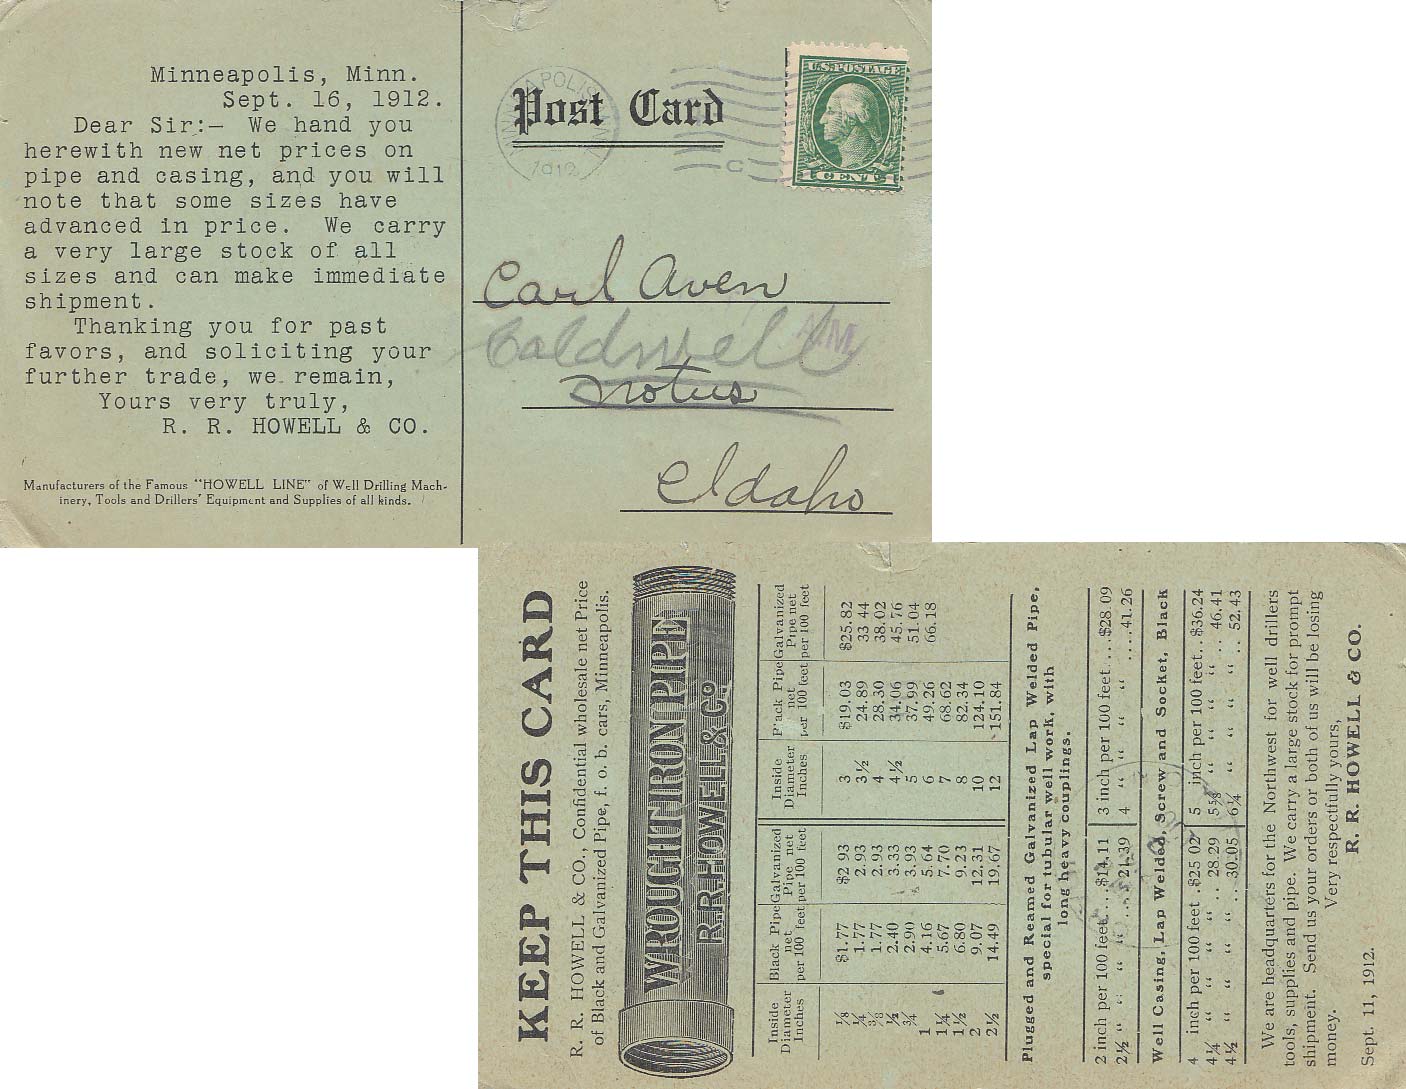 Minneapolis, Minn.
Sept. 16, 1912.
Dear Sir:— We hand you
herewith new net prices on
pipe and casing, and you will
note that some sizes have
advanced in price. We carry
a very large stock of all
sizes and can make immediate
shipment.
Thanking you for past
favors, and soliciting your
further trade, we remain,
Yours very truly,
R. R. HOWELL & CO.
Manufacturers of the Famous "HOWELL LINE" of Well Drilling Mach-
inery, Tools and Drillers' Equipment and Supplies of all kinds.
Post Card
1912
U.S. POSTAGE
1 CENT 1
C
Carl Aven
Caldwell
A.M.
Notus
Idaho
KEEP THIS CARD
R. R. HOWELL & CO., Confidential wholesale net Price
of Black and Galvanized Pipe, f. o. b. cars, Minneapolis.
WROUGHT IRON PIPE
R.R.HOWELL & Co
Inside Diameter Inches | Black Pipe net per 100 feet | Galvanized Pipe net per 100 feet | Inside Diameter Inches | Black Pipe net per 100 feet | Galvanized Pipe net per 100 feet
1/8 $1.77 $2 93 3 $19.03 $25.82
1/4 1.77 2.93 3½ 24.89 33 44
3/8 1.77 2.93 4 28.30 38.02
½ 2.40 3.33 4½ 34.06 45.76
3/4 2.90 3.93 5 37.99 51.04
1 4.16 5.64 6 49.26 66.18
1¼ 5.67 7.70 7 68.62
1½ 6.80 9.23 8 82.34
2 9.07 12.31 10 124.10
2½ 14.49 19.67 12 151.84
Plugged and Reamed Galvanized Lap Welded Pipe,
special for tubular well work, with
long heavy couplings.
2 inch per 100 feet...$14.11 3 inch per 100 feet....$28 09
2½ " " " " ... 21.39 4 " " " " ....41.26
Well Casing, Lap Welded, Screw and Socket, Black
4 inch per 100 feet .$25 02 5 inch per 100 feet..$36.24
4¼ " " " " .. 28.29 5⅝ " " " " .. 46.41
4½ " " " " .. 30.05 6¼ " " " " .. 52.43
We are headquarters for the Northwest for well drillers
tools, supplies and pipe. We carry a large stock for prompt
shipment. Send us your orders or both of us will be losing
money. Very respectfully yours,
Sept. 11, 1912. R. R. HOWELL & CO.